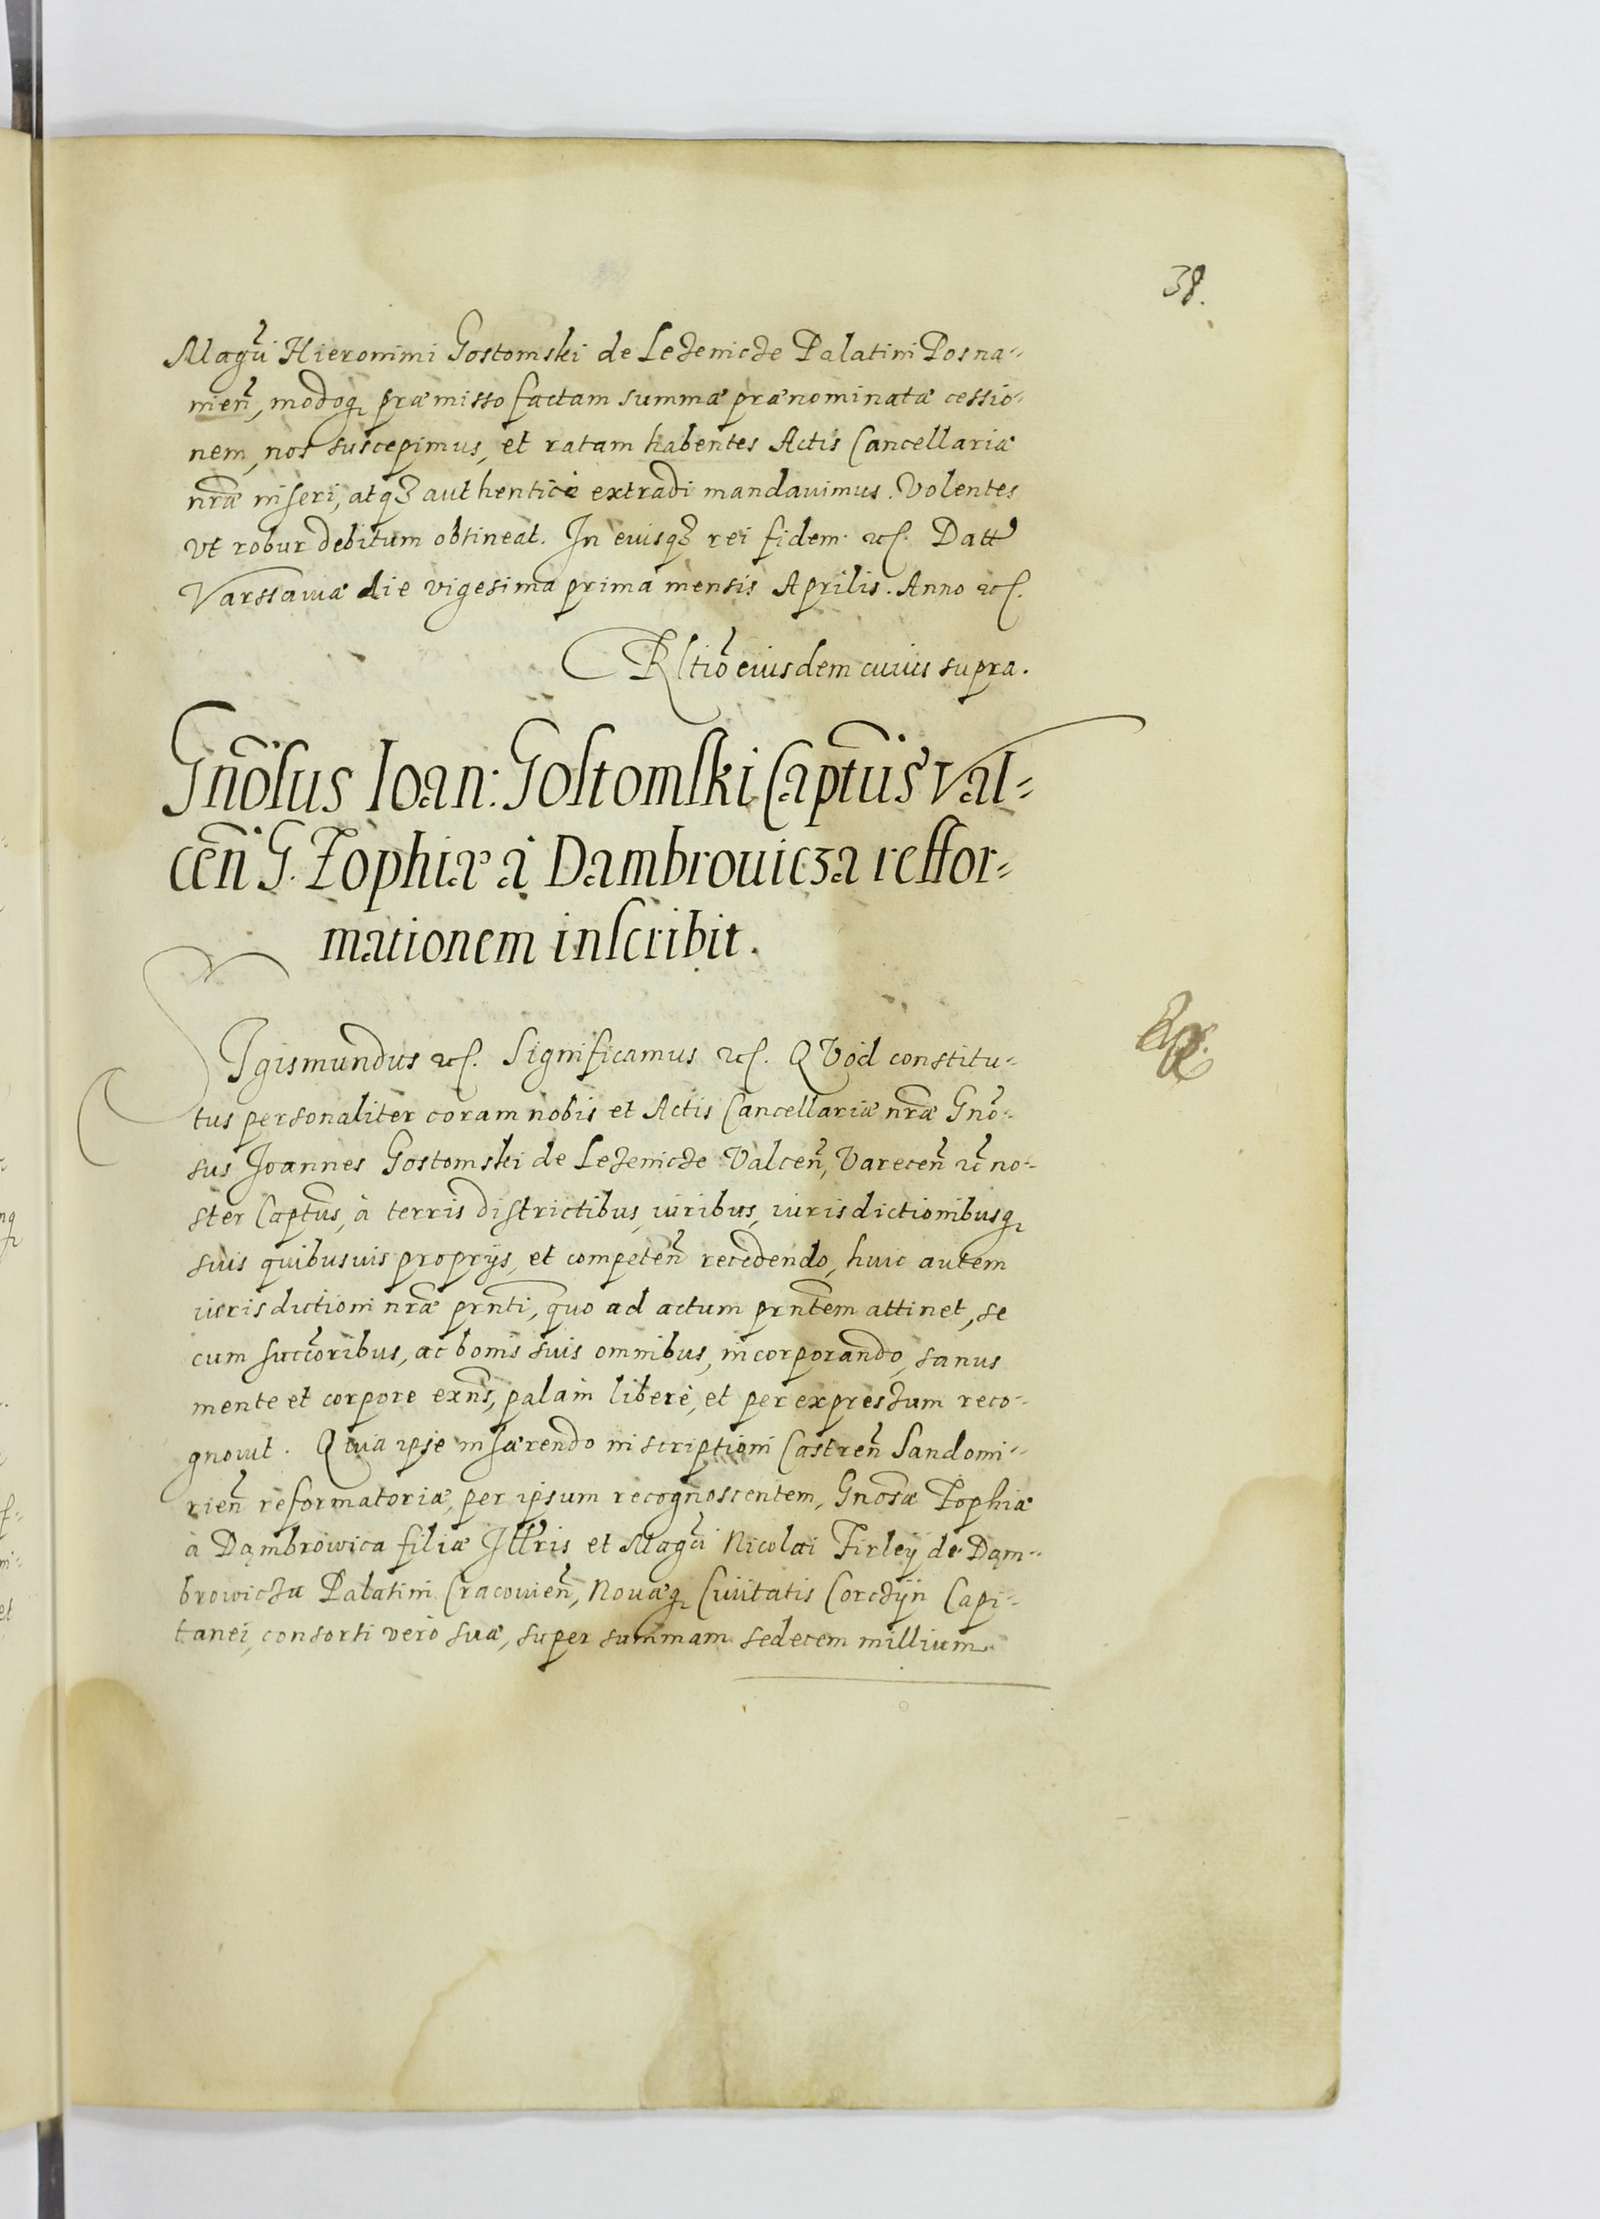 38.
Magci Hieronimi Gostomski de Lezenicze Palatini Posna-
nien, modoq præmisso factam summæ prænominatæ cessio-
nem, nos suscepimus, et ratam habentes Actis Cancellariæ
nræ inseri, atq3 authentice extradi mandauimus. Volentes
vt robur debitum obtineat. In euisq3 rei fidem. etc. Datt
Varssauiæ die vigesima prima mensis Aprilis. Anno etc.
Rltio eiusdem cuius supra.
Gnosus Ioan: Gostomski Captus Val-
cen G. Zophiæ à Dambrouicza reffor-
mationem inscribit.
Sigismundus etc. Significamus etc. QVod constitu-
tus personaliter coram nobis et Actis Cancellariæ nræ Gno-
sus Joannes Gostomski de Lezenicze Valcen, Varecen etc no-
ster Captus, à terris districtibus, iuribus, iurisdictionibusq
suis quibusuis proprijs, et competen recedendo, huic autem
iurisdictioni nræ prnti, quo ad actum prntem attinet, se
cum succoribus, ac bonis suis omnibus, incorporando, sanus
mente et corpore exns, palam liberè, et per expressum reco-
gnouit. Quia ipse inhærendo inscriptioni Castren Sandomi-
rien reformatoriæ, per ipsum recognoscentem, Gnosæ Zophiæ
à Dąmbrowica filiæ Illris et Magci Nicolai Firleÿ de Dąm-
browicza Palatini Cracouien, Nouæq Ciuitatis Corczÿn Capi-
tanei, consorti verò suæ, super summam sedecem millium